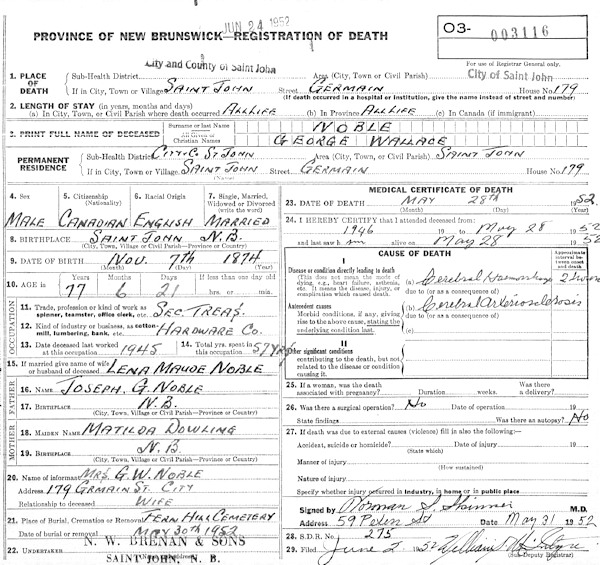 JUN 24 1952
PROVINCE OF NEW BRUNSWICK—REGISTRATION OF DEATH
O3- 003116
For use of Registrar General only.
City and County of Saint John
City of Saint John
1. PLACE OF DEATH
Sub-Health District Area (City, Town or Civil Parish)
If in City, Town or Village SAINT JOHN Street GERMAIN House No 179
(If death occurred in a hospital or institution, give the name instead of street and number)
2. LENGTH OF STAY (in years, months and days)
(a) In City, Town or Civil Parish where death occurred ALL LIFE (b) In Province ALL LIFE (c) In Canada (if immigrant)
3. PRINT FULL NAME OF DECEASED
Surname or last name NOBLE
All Given or Christian Names GEORGE WALLACE
PERMANENT RESIDENCE
Sub-Health District CITY-C. ST JOHN Area (City, Town or Civil Parish) SAINT JOHN
If in City, Town or Village SAINT JOHN Street GERMAIN House No. 179
(Name)
4. Sex
5. Citizenship (Nationality)
6. Racial Origin
7. Single, Married, Widowed or Divorced (write the word)
MALE CANADIAN ENGLISH MARRIED
8. BIRTHPLACE SAINT JOHN N.B.
(City, Town, Village or Civil Parish—Province or Country)
9. DATE OF BIRTH NOV. 7TH 1874
(Month) (Day) (Year)
10. AGE in
Years Months Days If less than one day old
77 6 21 hrs. or min.
OCCUPATION
11. Trade, profession or kind of work as spinner, teamster, office clerk, etc. SEC. TREAS.
12. Kind of industry or business, as cotton-mill, lumbering, bank, etc. HARDWARE CO.
13. Date deceased last worked at this occupation 1945
14. Total yrs. spent in this occupation 57 YRS
15. If married give name of wife or husband of deceased LENA MAUDE NOBLE
FATHER
16. NAME JOSEPH G. NOBLE
17. BIRTHPLACE N.B.
(City, Town, Village or Civil Parish—Province or Country)
MOTHER
18. MAIDEN NAME MATILDA DOWLING
19. BIRTHPLACE N.B.
(City, Town, Village or Civil Parish—Province or Country)
20. Name of informant MRS. G. W. NOBLE
Address 179 GRMAIN ST. CITY
Relationship to deceased WIFE
21. Place of Burial, Cremation or Removal FERN HILL CEMETERY
Date of burial or removal MAY 30TH 1952
22. UNDERTAKER N. W. BRENAN & SONS
SAINT JOHN, N. B.
MEDICAL CERTIFICATE OF DEATH
23. DATE OF DEATH MAY 28TH 1952
(Month) (Day) (Year)
24. I HEREBY CERTIFY that I attended deceased from:
1946 19 to May 28 1952
and last saw him alive on May 28 1952
CAUSE OF DEATH
Approximate interval between onset and death
I
Disease or condition directly leading to death
(This does not mean the mode of dying, e.g., heart failure, asthenia, etc. It means the disease, injury, or complication which caused death.
(a) Cerebral Hemorrhage
due to (or as a consequence of)
Antecedent causes
Morbid conditions, if any, giving rise to the above cause, stating the underlying condition last.
(b) Cerebral Arteriosclerosis
due to (or as a consequence of)
(c)
II
Other significant conditions
contributing to the death, but not related to the disease or condition causing it.
25. If a woman, was the death associated with pregnancy? Duration weeks. Was there a delivery?
26. Was there a surgical operation? No Date of operation 19
State findings Was there an autopsy? No
27. If death was due to external causes (violence) fill in also the following:—
Accident, suicide or homicide? Date of injury 19
(State which)
Manner of injury
(How sustained)
Nature of injury
Specify whether injury occurred in industry, in home or in public place
Signed by Norman S. Skinner M.D.
Address 59 Date May 31 1952
28. S.D.R. No. 275
29. Filed June 2 1952 William
(Sub-Deputy Registrar)